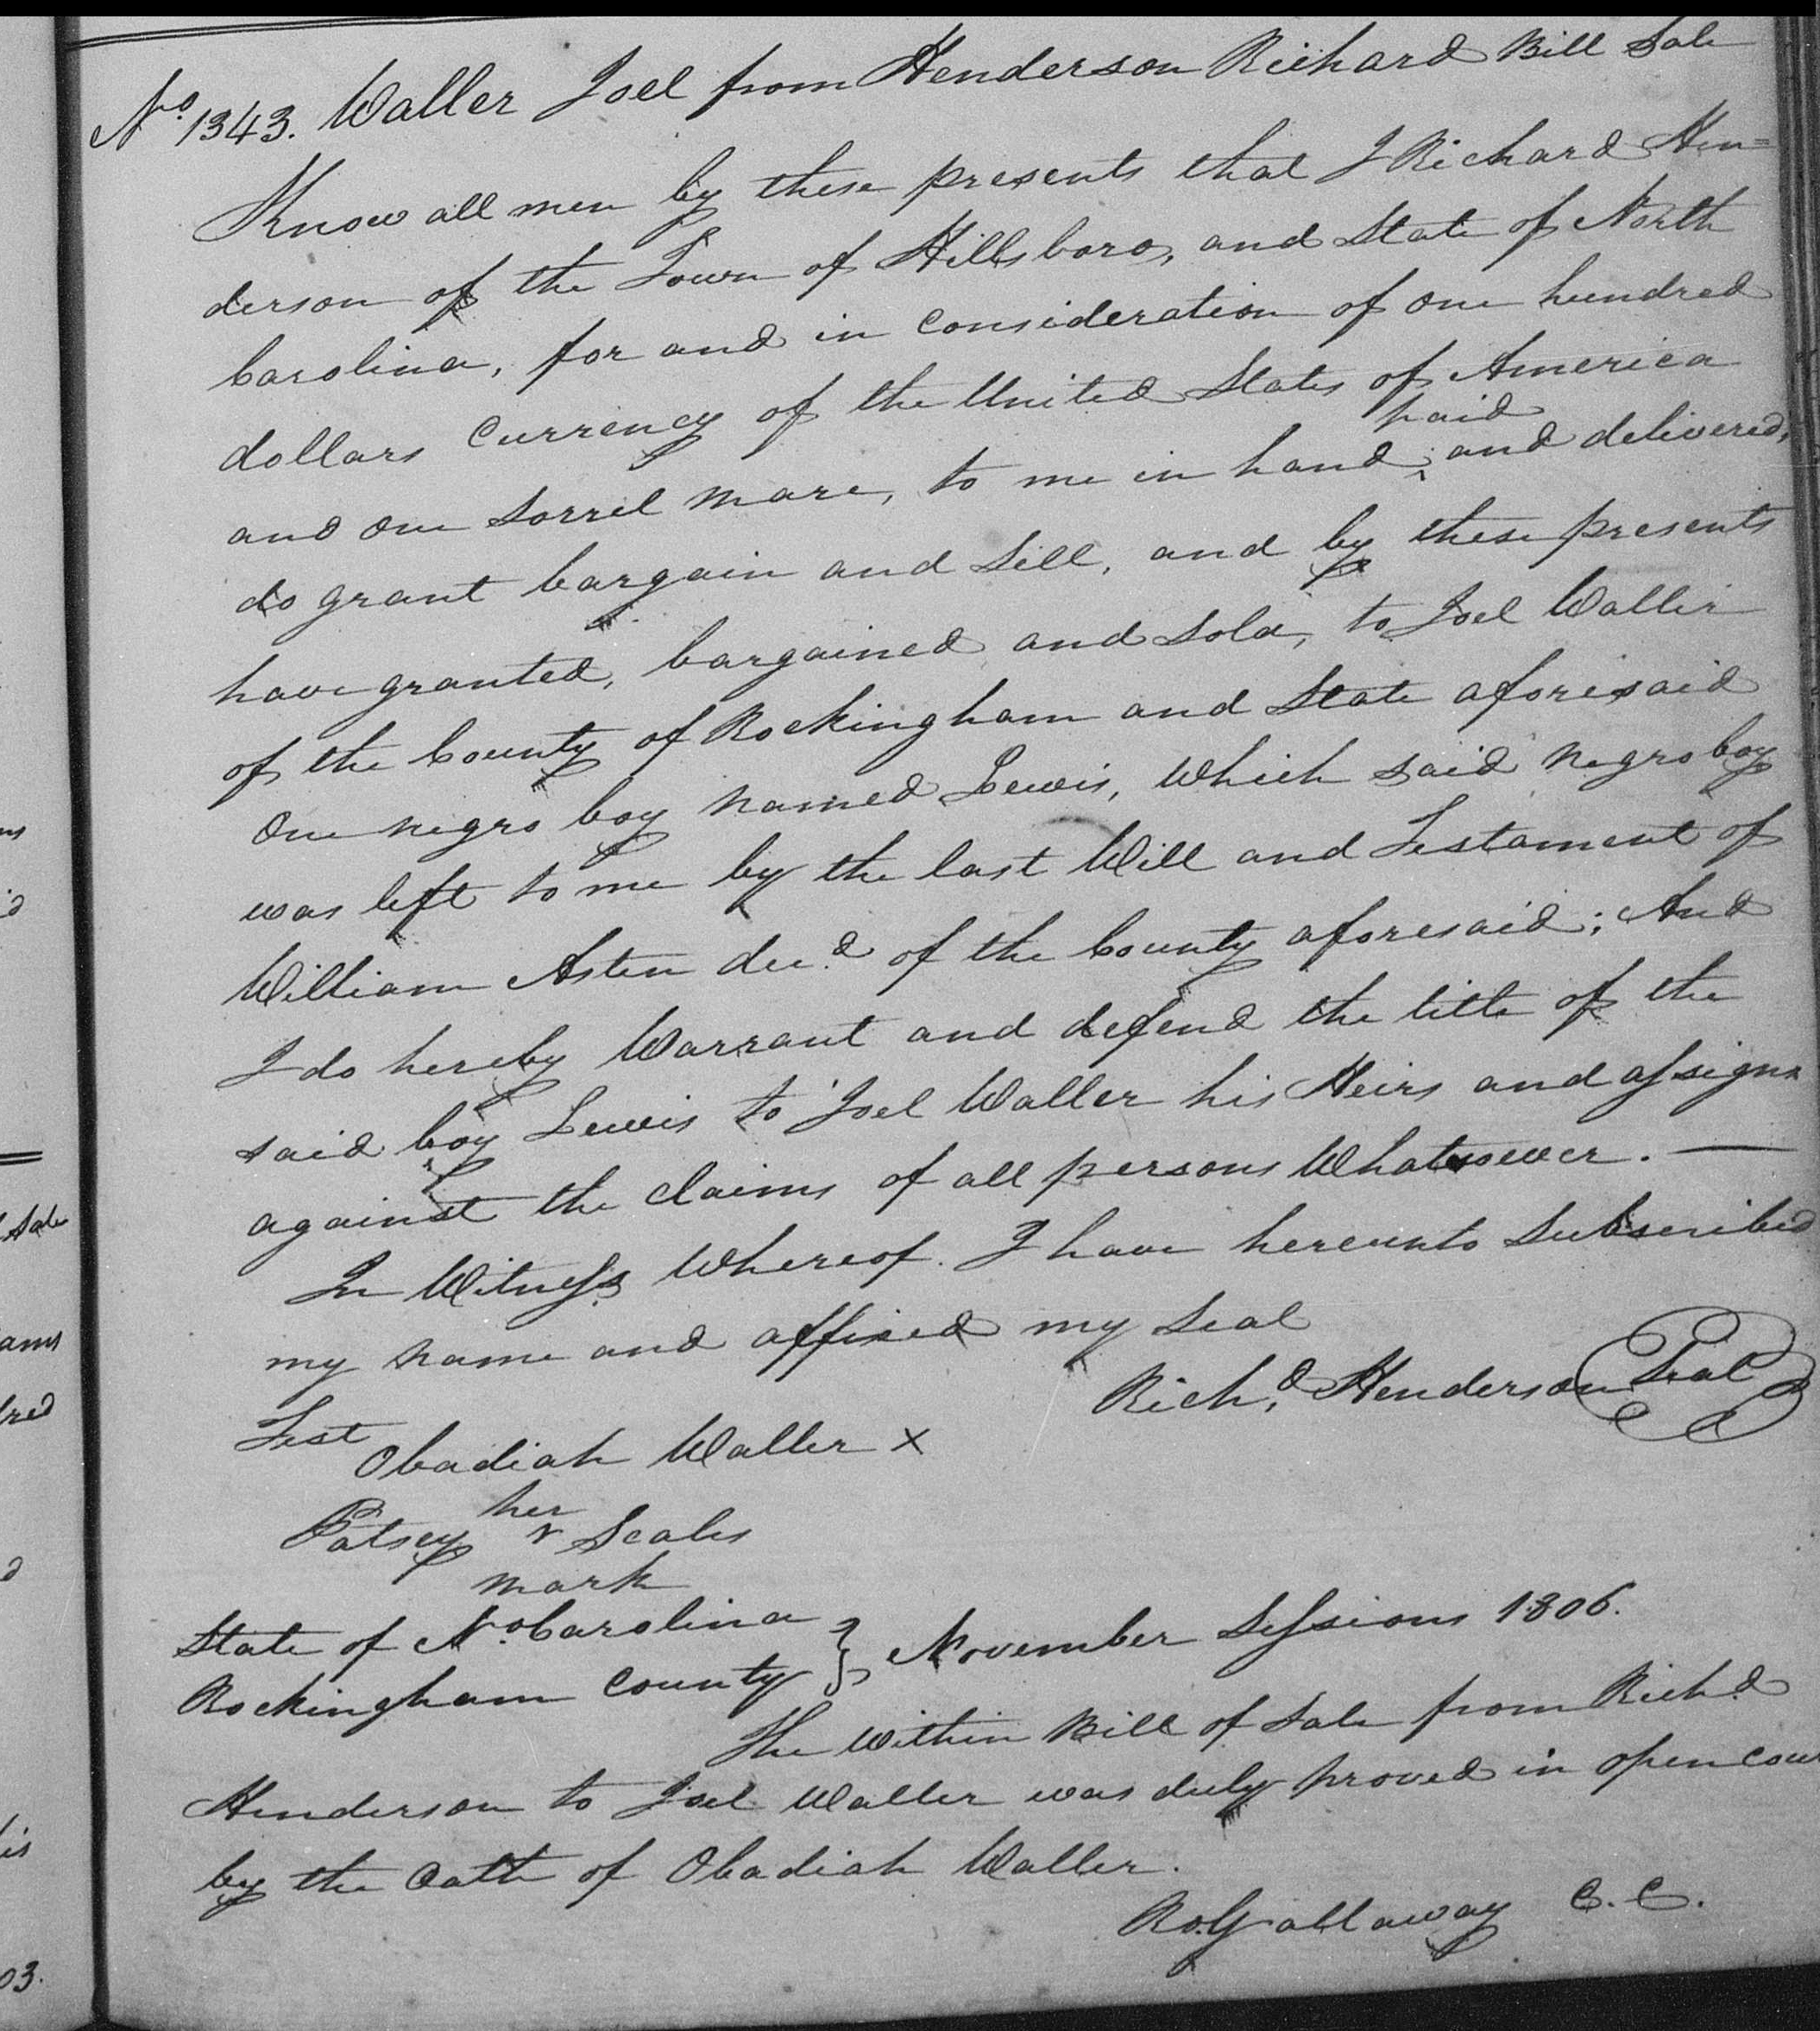 No 1343. Waller Joel from Henderson Richard Bill Sale
Know all men by these presents that I Richard Hen=
derson of the Town of Hillsboro, and State of North
Carolina, for and in consideration of one hundred
dollars currency of the United States of America
and one sorrel mare, to me in hand paid and delivered,
do grant bargain and sell, and by these presents
have granted, bargained and sold, to Joel Waller
of the County of Rockingham and State aforesaid
One negro boy named Lewis, which said negro boy
was left to me by the last Will and Testament of
William Asten decd of the County aforesaid; And
I do hereby Warrant and defend the title of the
said boy Lewis to Joel Waller his Heirs and assigns
against the claims of all persons Whatsoever. —
In Witness Whereof. I have hereunto subscribed
my name and affixed my seal
Richd Henderson Seal
Test
Obadiah Waller X
her
Patsey x Scales
mark
State of No Carolina } November Sessions 1806.
Rockingham County
The within Bill of Sale from Richd
Henderson to Joel Waller was duly proved in open cou
by the Oath of Obadiah Waller.
Ro. Gallaway C. C.